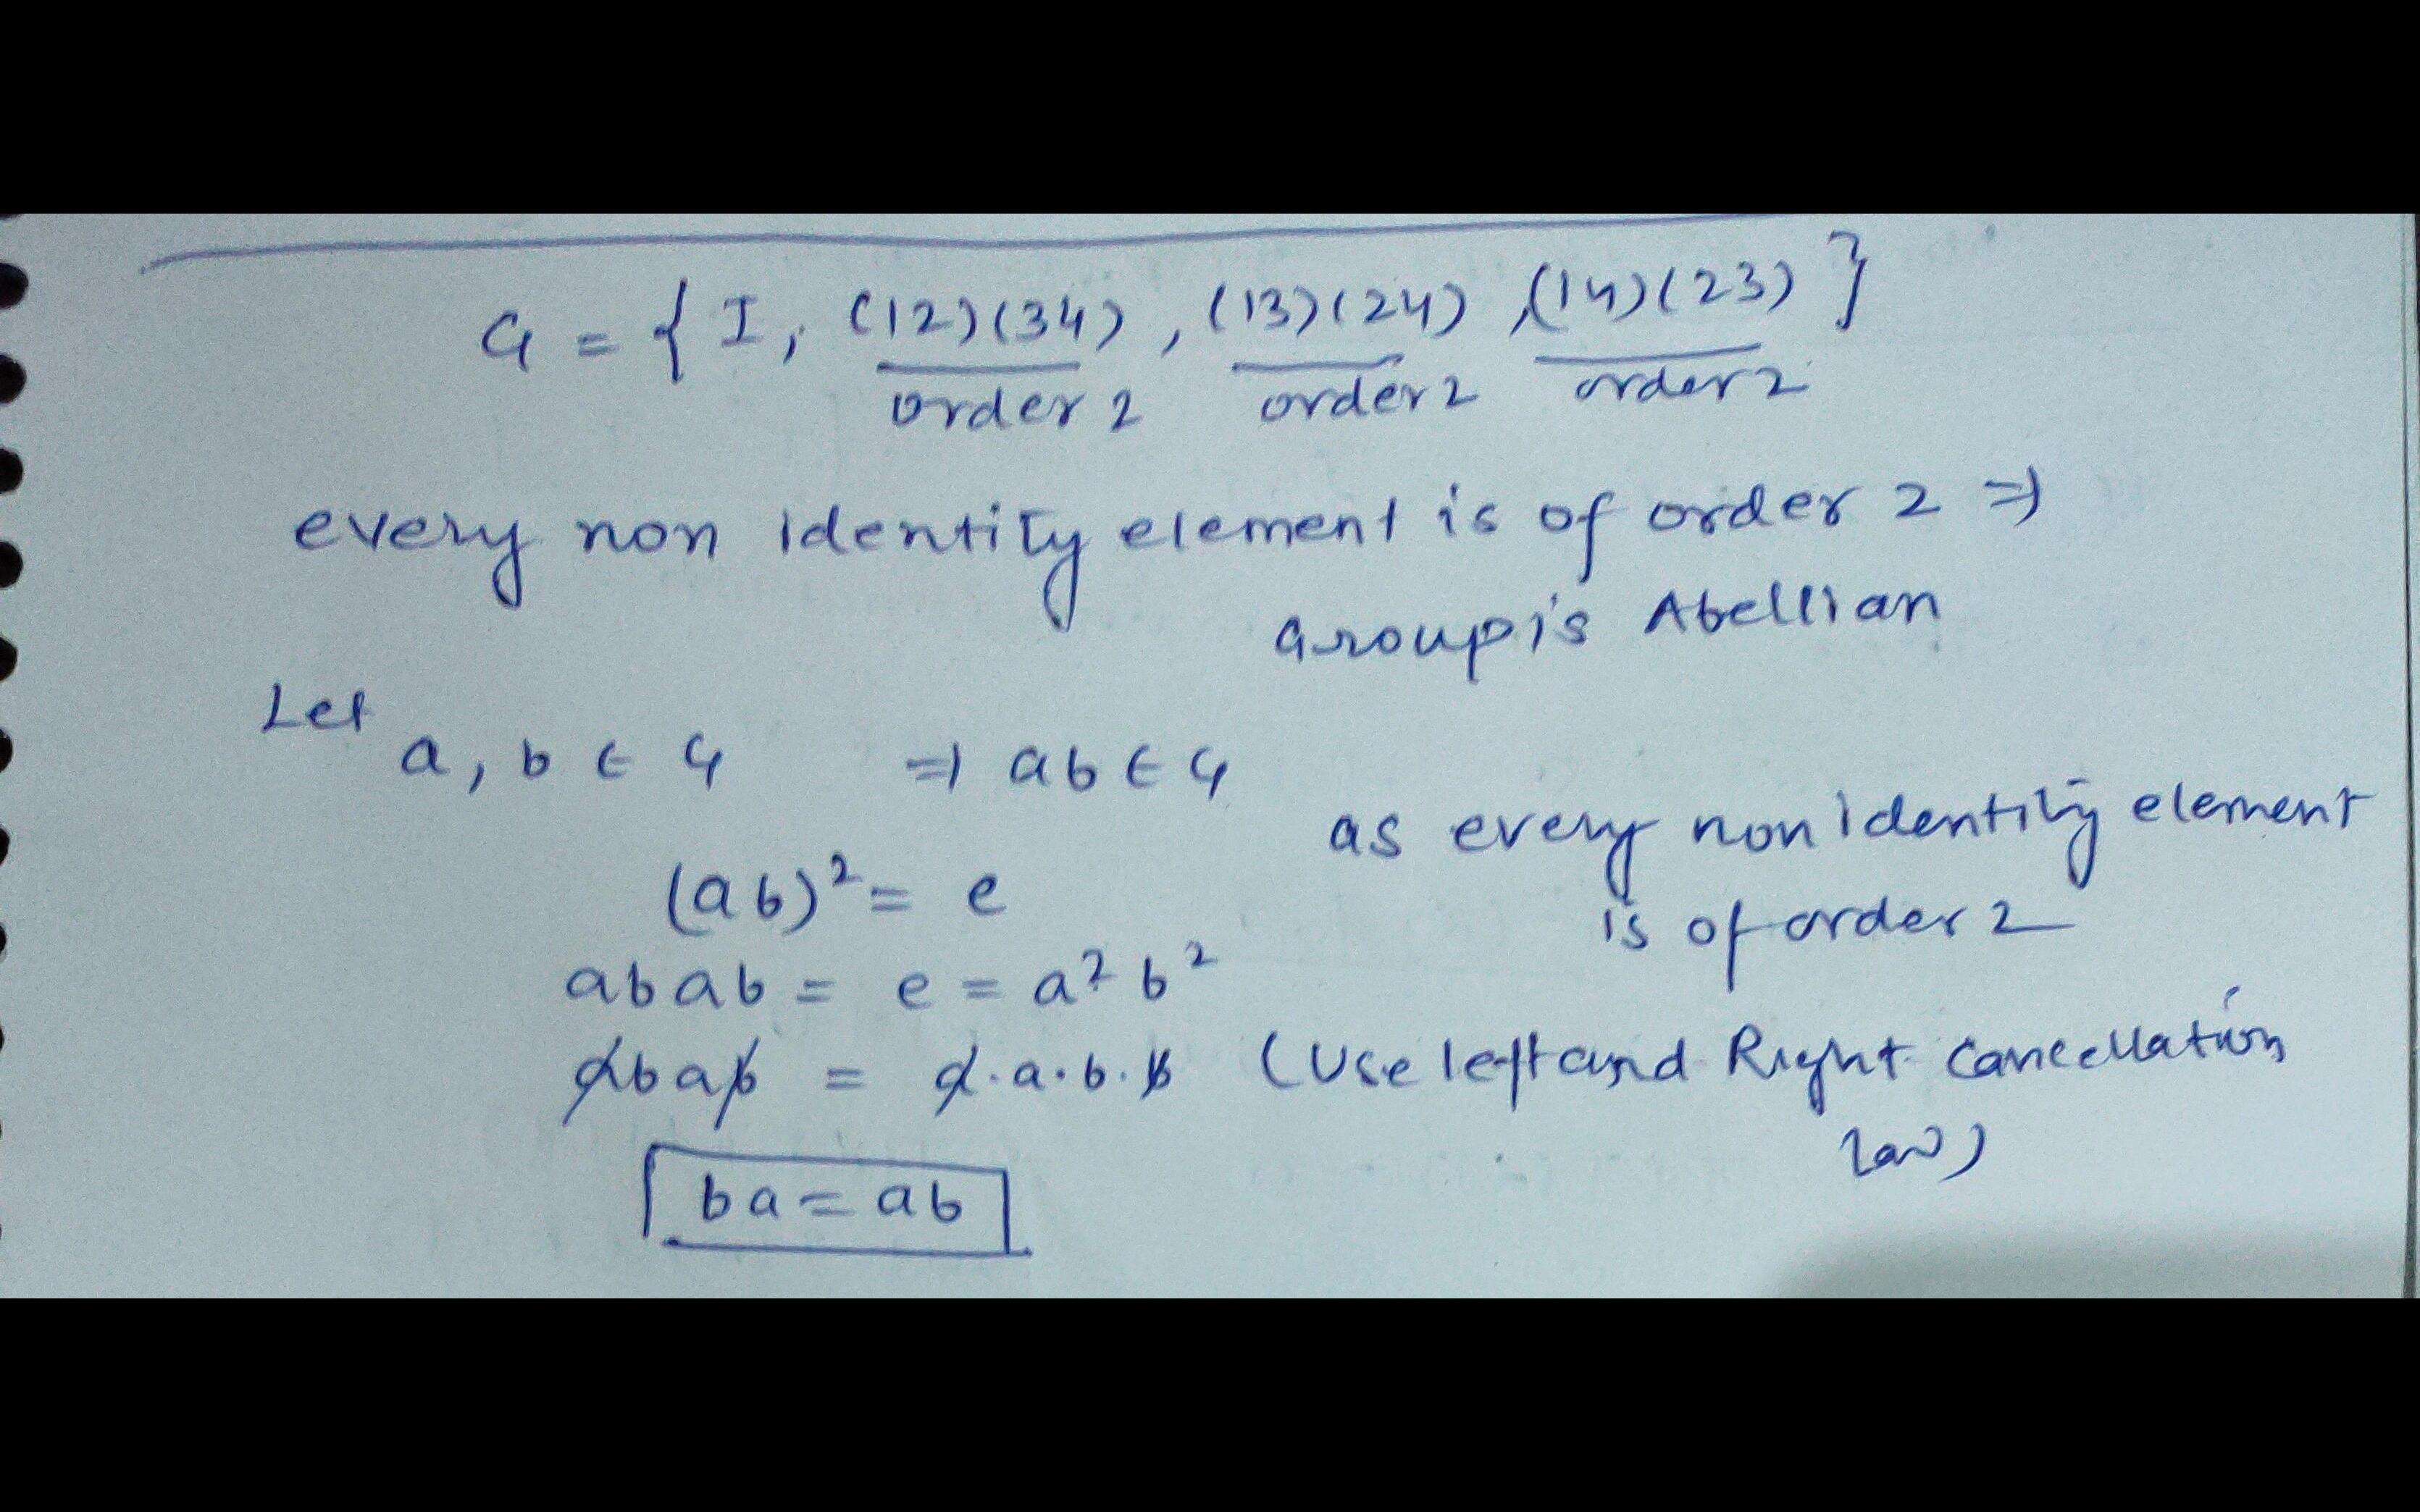 G = { I, (12)(34), (13)(24), (14)(23) }
order 2 order 2 order 2
every non identity element is of order 2 ⇒
Group is Abellian
Let
a, b ∈ G ⇒ ab ∈ G
as every non identity element
(ab)² = e
is of order 2
abab = e = a² b²
abab = a.a.b.b (Use left and Right cancellation
law)
ba = ab